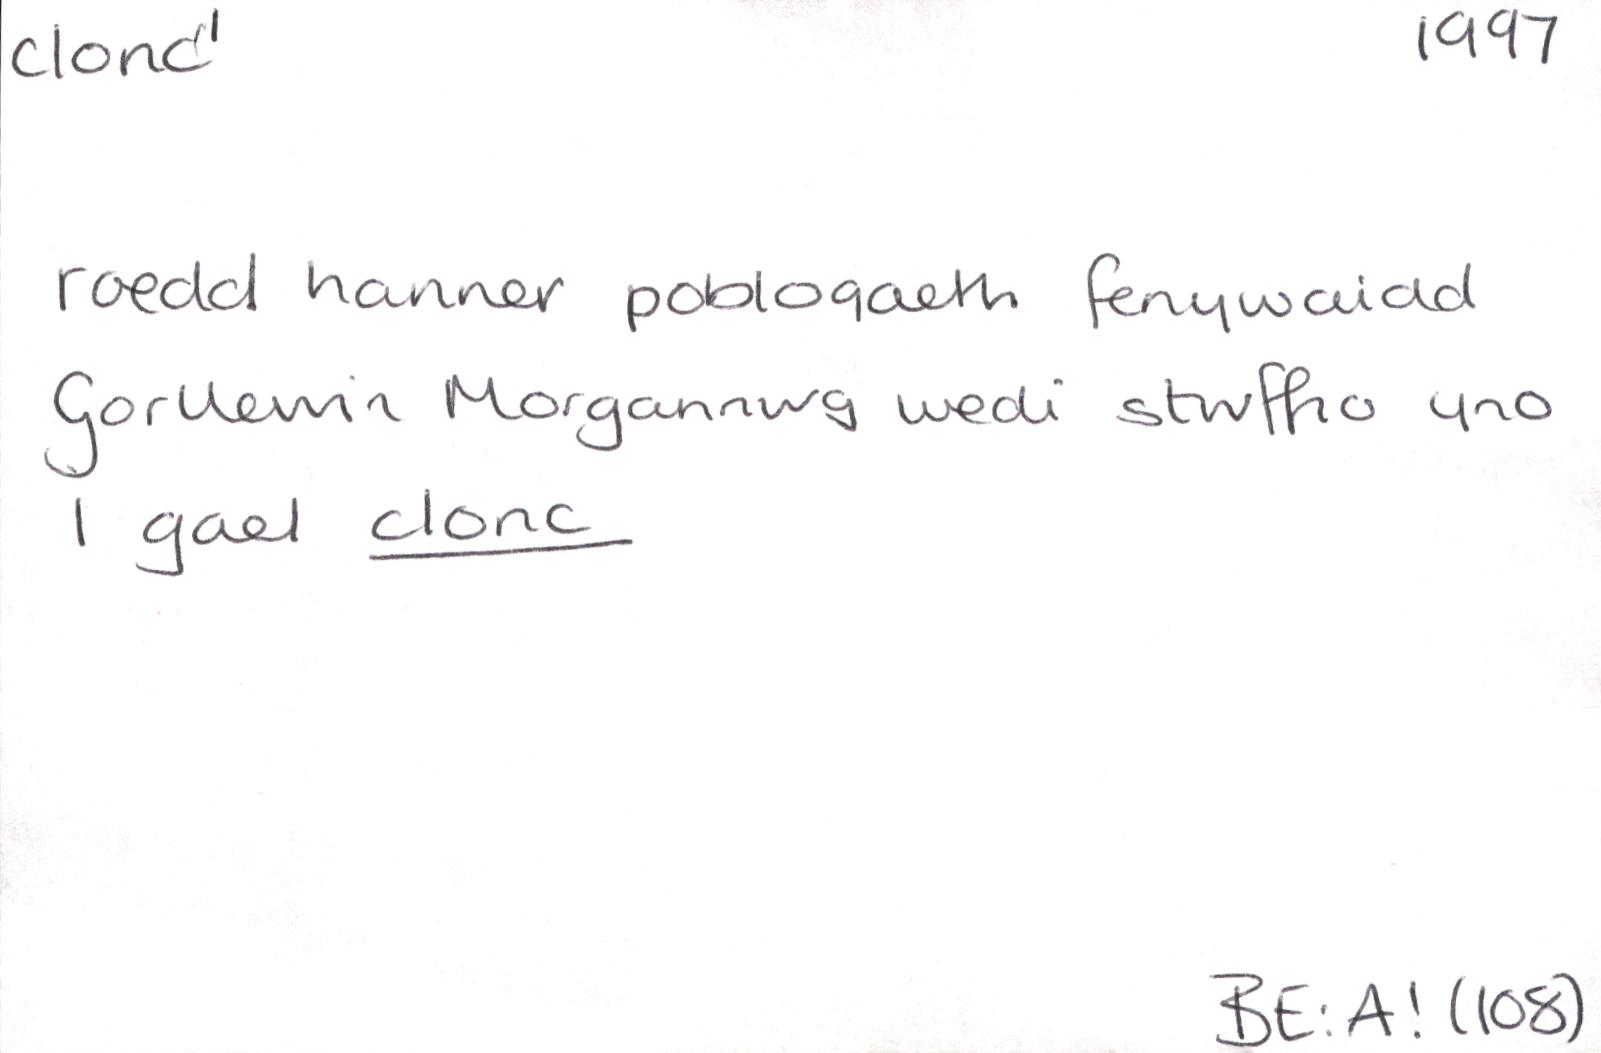 clonc¹ 1997
roedd hanner poblogaeth fenywaidd
Gorllewin Morgannwg wedi stwffio yno
I gael clonc
BE: A! (108)